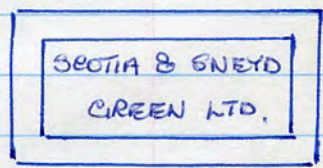 SCOTIA & SNEYD
GREEN LTD.